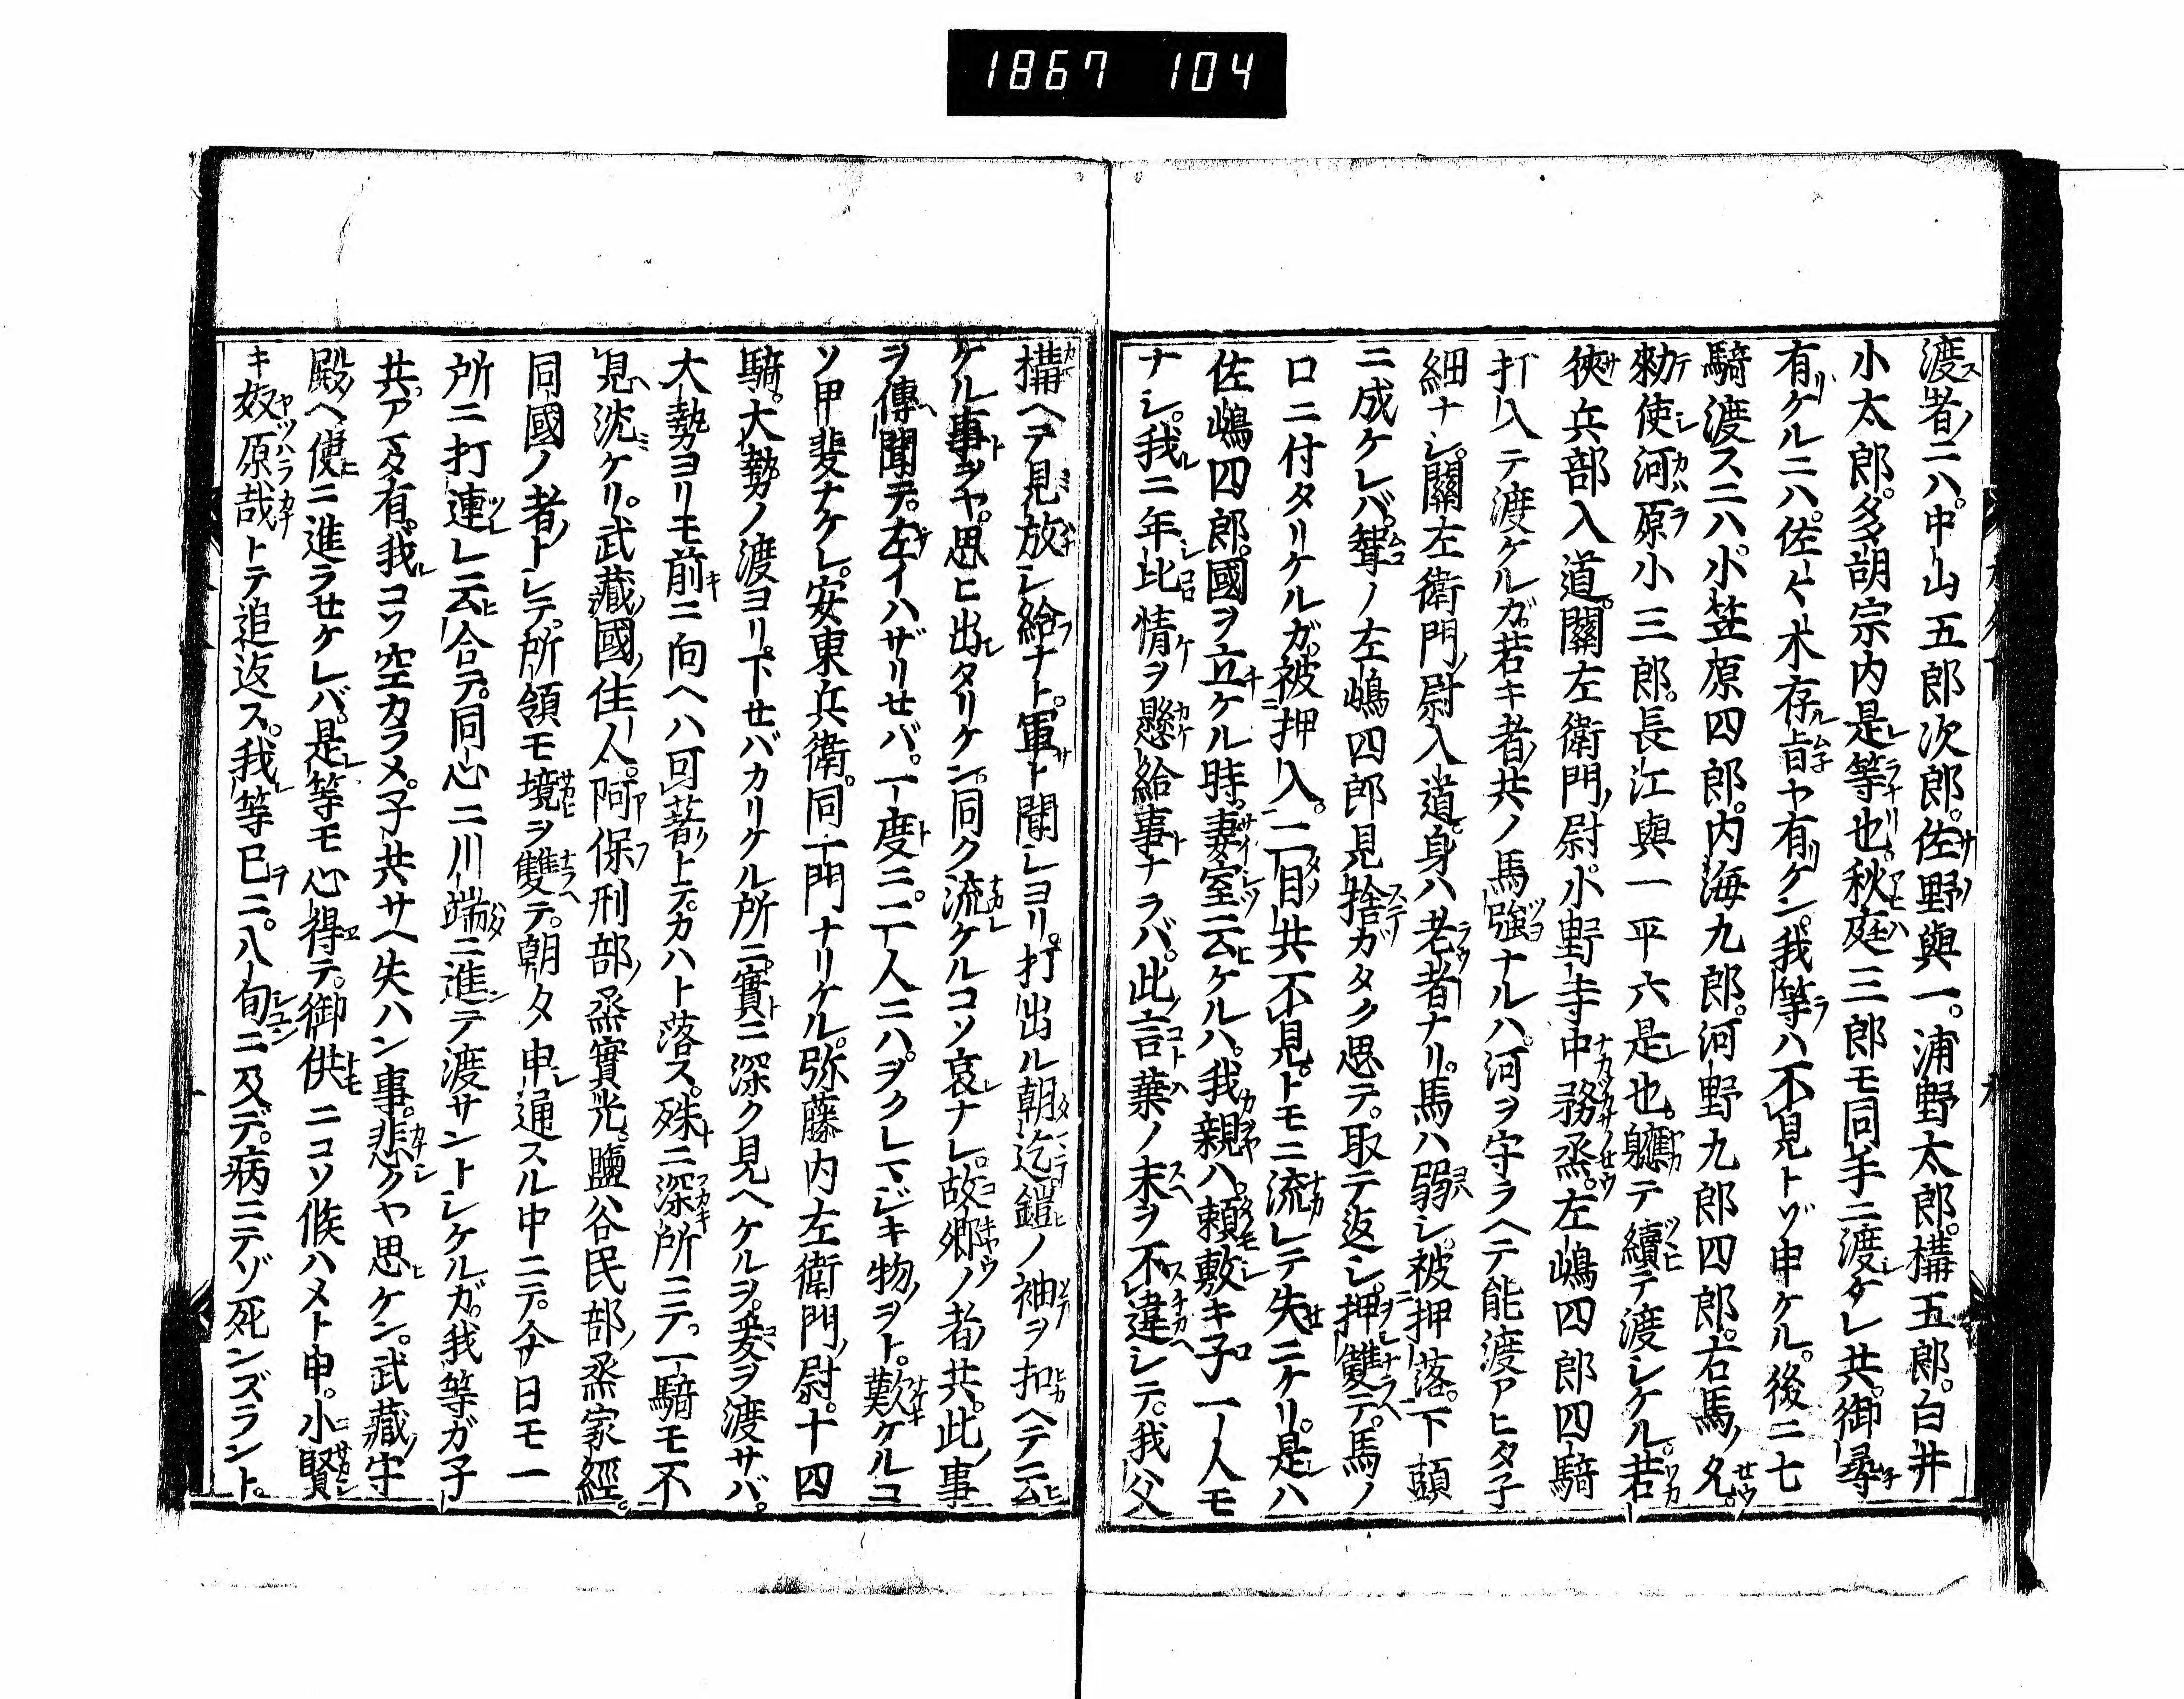 1867 104
渡ス者ノニハ。中山五郎次郎。佐野與一。浦野太郎。構五郎。白井
小太郎。多胡宗内是等也。秋庭三郎モ同手ニ渡タレ共。御尋
有ケルニハ。佐々木存旨ヤ有ケン。我等ハ不見トゾ申ケル。後ニ七
騎渡スニハ小笠原四郎。内海九郎。河野九郎四郎。右馬ノ夕。
勅使河原小三郎。長江與一平六是也。軈テ續テ渡シケル。若
狹兵部入道。關左衛門ノ尉。小野寺中務烝。左嶋四郎四騎
打入テ渡ケルガ。若キ者共ノ馬強ナルハ。河ヲ守ラヘテ能渡アヒタ子
細ナシ。關左衛門ノ尉入道。身ハ老者ナリ。馬ハ弱シ。被押落下頭
ニ成ケレバ。聟ノ左嶋四郎見捨ガタク思テ。取テ返シ。押雙テ。馬ノ
口ニ付タリケルガ。被押入。二目共不見。トモニ流レテ失ニケリ。是ハ
佐嶋四郎。國ヲ立ケル時。妻室云ケルハ。我親ハ。頼敷キ子一人モ
ナシ。我ニ年比情ヲ懸給事ナラバ。此言葉ノ末ヲ不違シテ。我父
構ヘテ見放シ給ナト。軍ト聞シヨリ。打出ル朝迄鎧ノ袖ヲ扣ヘテ云
ケル事ヲヤ。思ヒ出タリケン。同ク流ケルコソ哀ナレ。故郷ノ者共。此ノ事
ヲ傳聞テ。左イハザリセバ。一度ニ。二人ニハ。ヲクレマジキ物ヲト。歎ケルコ
ソ甲斐ナケレ。安東兵衛。同一門ナリケル。弥藤内左衛門ノ尉。十四
騎。大勢ノ渡ヨリ。下セバカリケル所ニ。實ニ深ク見ヘケルヲ。爰ヲ渡サバ。
大勢ヨリモ前ニ向ヘハ可著トテ。カハト落ス。殊ニ深所ニテ。一騎モ不
見沈ケリ。武藏ノ國ノ住人。阿保刑部ノ烝實光。鹽谷民部ノ烝家經。
同國ノ者トシテ。所領モ境ヲ雙テ。朝夕申通スル中ニテ。今日モ一
所ニ打連レ云合テ。同心ニ川端ニ進テ渡サントシケルガ。我等ガ子
共アマタ有。我コソ空カラメ。子共サヘ失ハン事。悲クヤ思ケン。武藏ノ守
殿ヘ使ニ進ラセケレバ。是等モ心得テ。御供ニコソ候ハメト申。小賢
キ奴原哉トテ追返ス。我等已ニ。八旬ニ及デ。病ニテゾ死ンズラント。